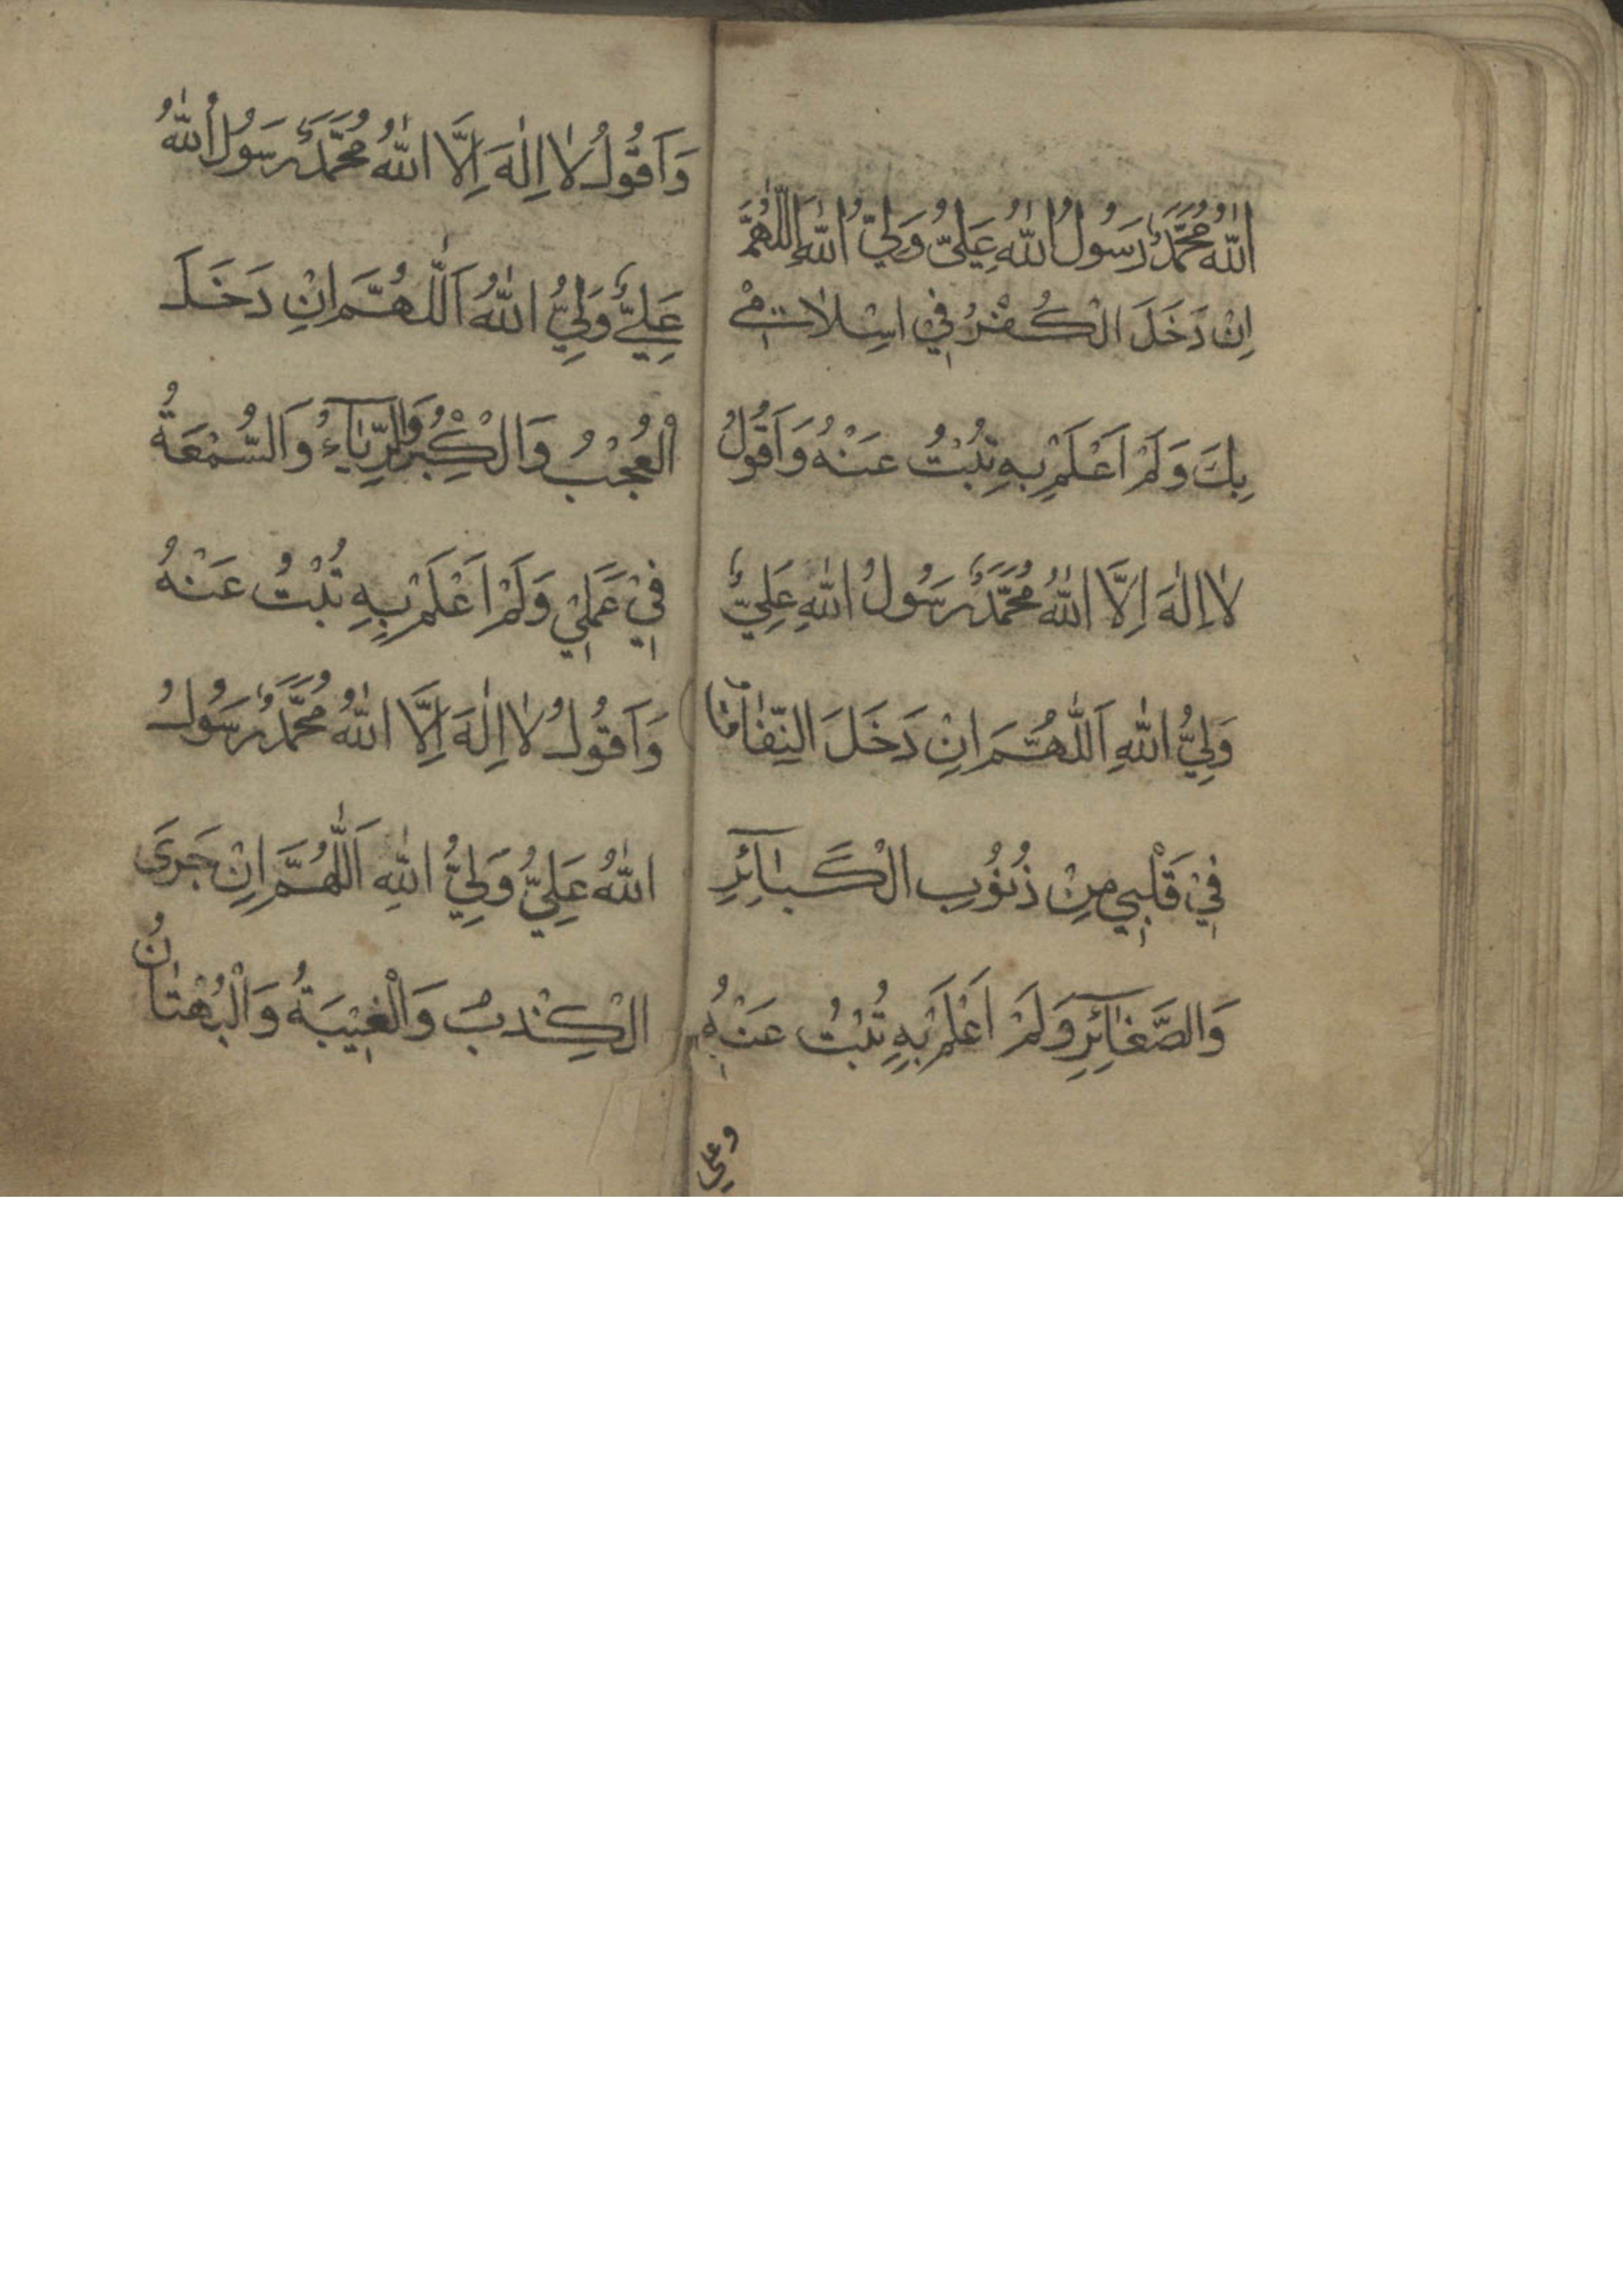 اللهُ مُحَمَّدٌ رَسُولُ اللهِ عَلِيٌّ وَلِيُّ اللهِ اَللّٰهُمَّ
اِنْ دَخَلَ الْكُفْرُ فِيْ اِسْلَامِيْ
بِكَ وَلَمْ اَعْلَمْ بِهِ تُبْتُ عَنْهُ وَاَقُوْلُ
لَا اِلٰهَ اِلَّا اللهُ مُحَمَّدٌ رَسُولُ اللهِ عَلِيٌّ
وَلِيُّ اللهِ اَللّٰهُمَّ اِنْ دَخَلَ النِّفَاقُ
فِيْ قَلْبِيْ مِنْ ذُنُوْبِ الْكَبَآئِرِ
وَالصَّغَآئِرِ وَلَمْ اَعْلَمْ بِهِ تُبْتُ عَنْهُ
وعلي
وَاَقُوْلُ لَا اِلٰهَ اِلَّا اللهُ مُحَمَّدٌ رَسُوْلُ اللهِ
عَلِيٌّ وَلِيُّ اللهِ اَللّٰهُمَّ اِنْ دَخَلَ
الْعُجْبُ وَالْكِبْرُ وَالرِّيَآءُ وَالسُّمْعَةُ
فِيْ عَمَلِيْ وَلَمْ اَعْلَمْ بِهِ تُبْتُ عَنْهُ
وَاَقُوْلُ لَا اِلٰهَ اِلَّا اللهُ مُحَمَّدٌ رَسُوْلُ
اللهِ عَلِيٌّ وَلِيُّ اللهِ اَللّٰهُمَّ اِنْ جَرَى
الْكِذْبُ وَالْغِيْبَةُ وَالْبُهْتَانُ